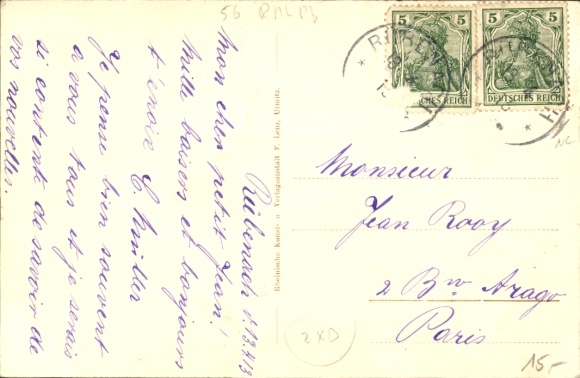 56 RMLPb
Rübenach d. 13.4.13
Mon cher petit Jean!
Mille baisers et bonjours
t'envoie C Müller
Je pense bien souvent
a vous tous et je serais
si contente de savoir de
vos nouvelles.
Rheinische Kunst- u Verlagsanstalt F. Lenz, Urmitz.
5 5
5 5
DEUTSCHES REICH
CHES REICH
Monsieur
Jean Rooy
2 Bv Arago
Paris
2XD
15.-
NC